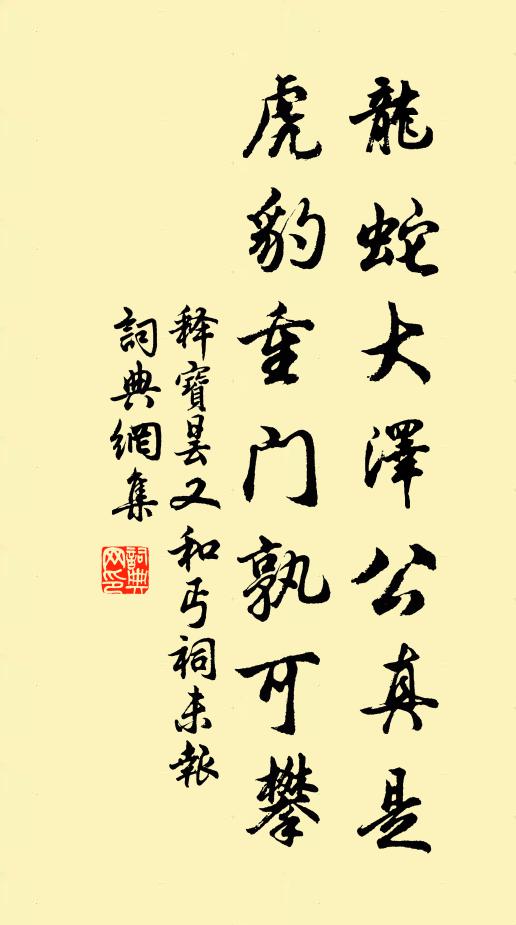 龍蛇大澤公真是
虎豹重门孰可攀
释寶曇又和丐祠未報
詞典網集
詞典网印